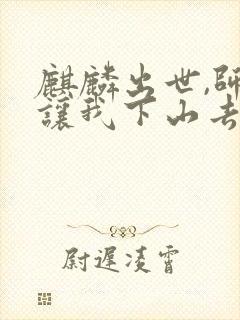 麒麟出世,師
讓我下山去
尉遲凌霄